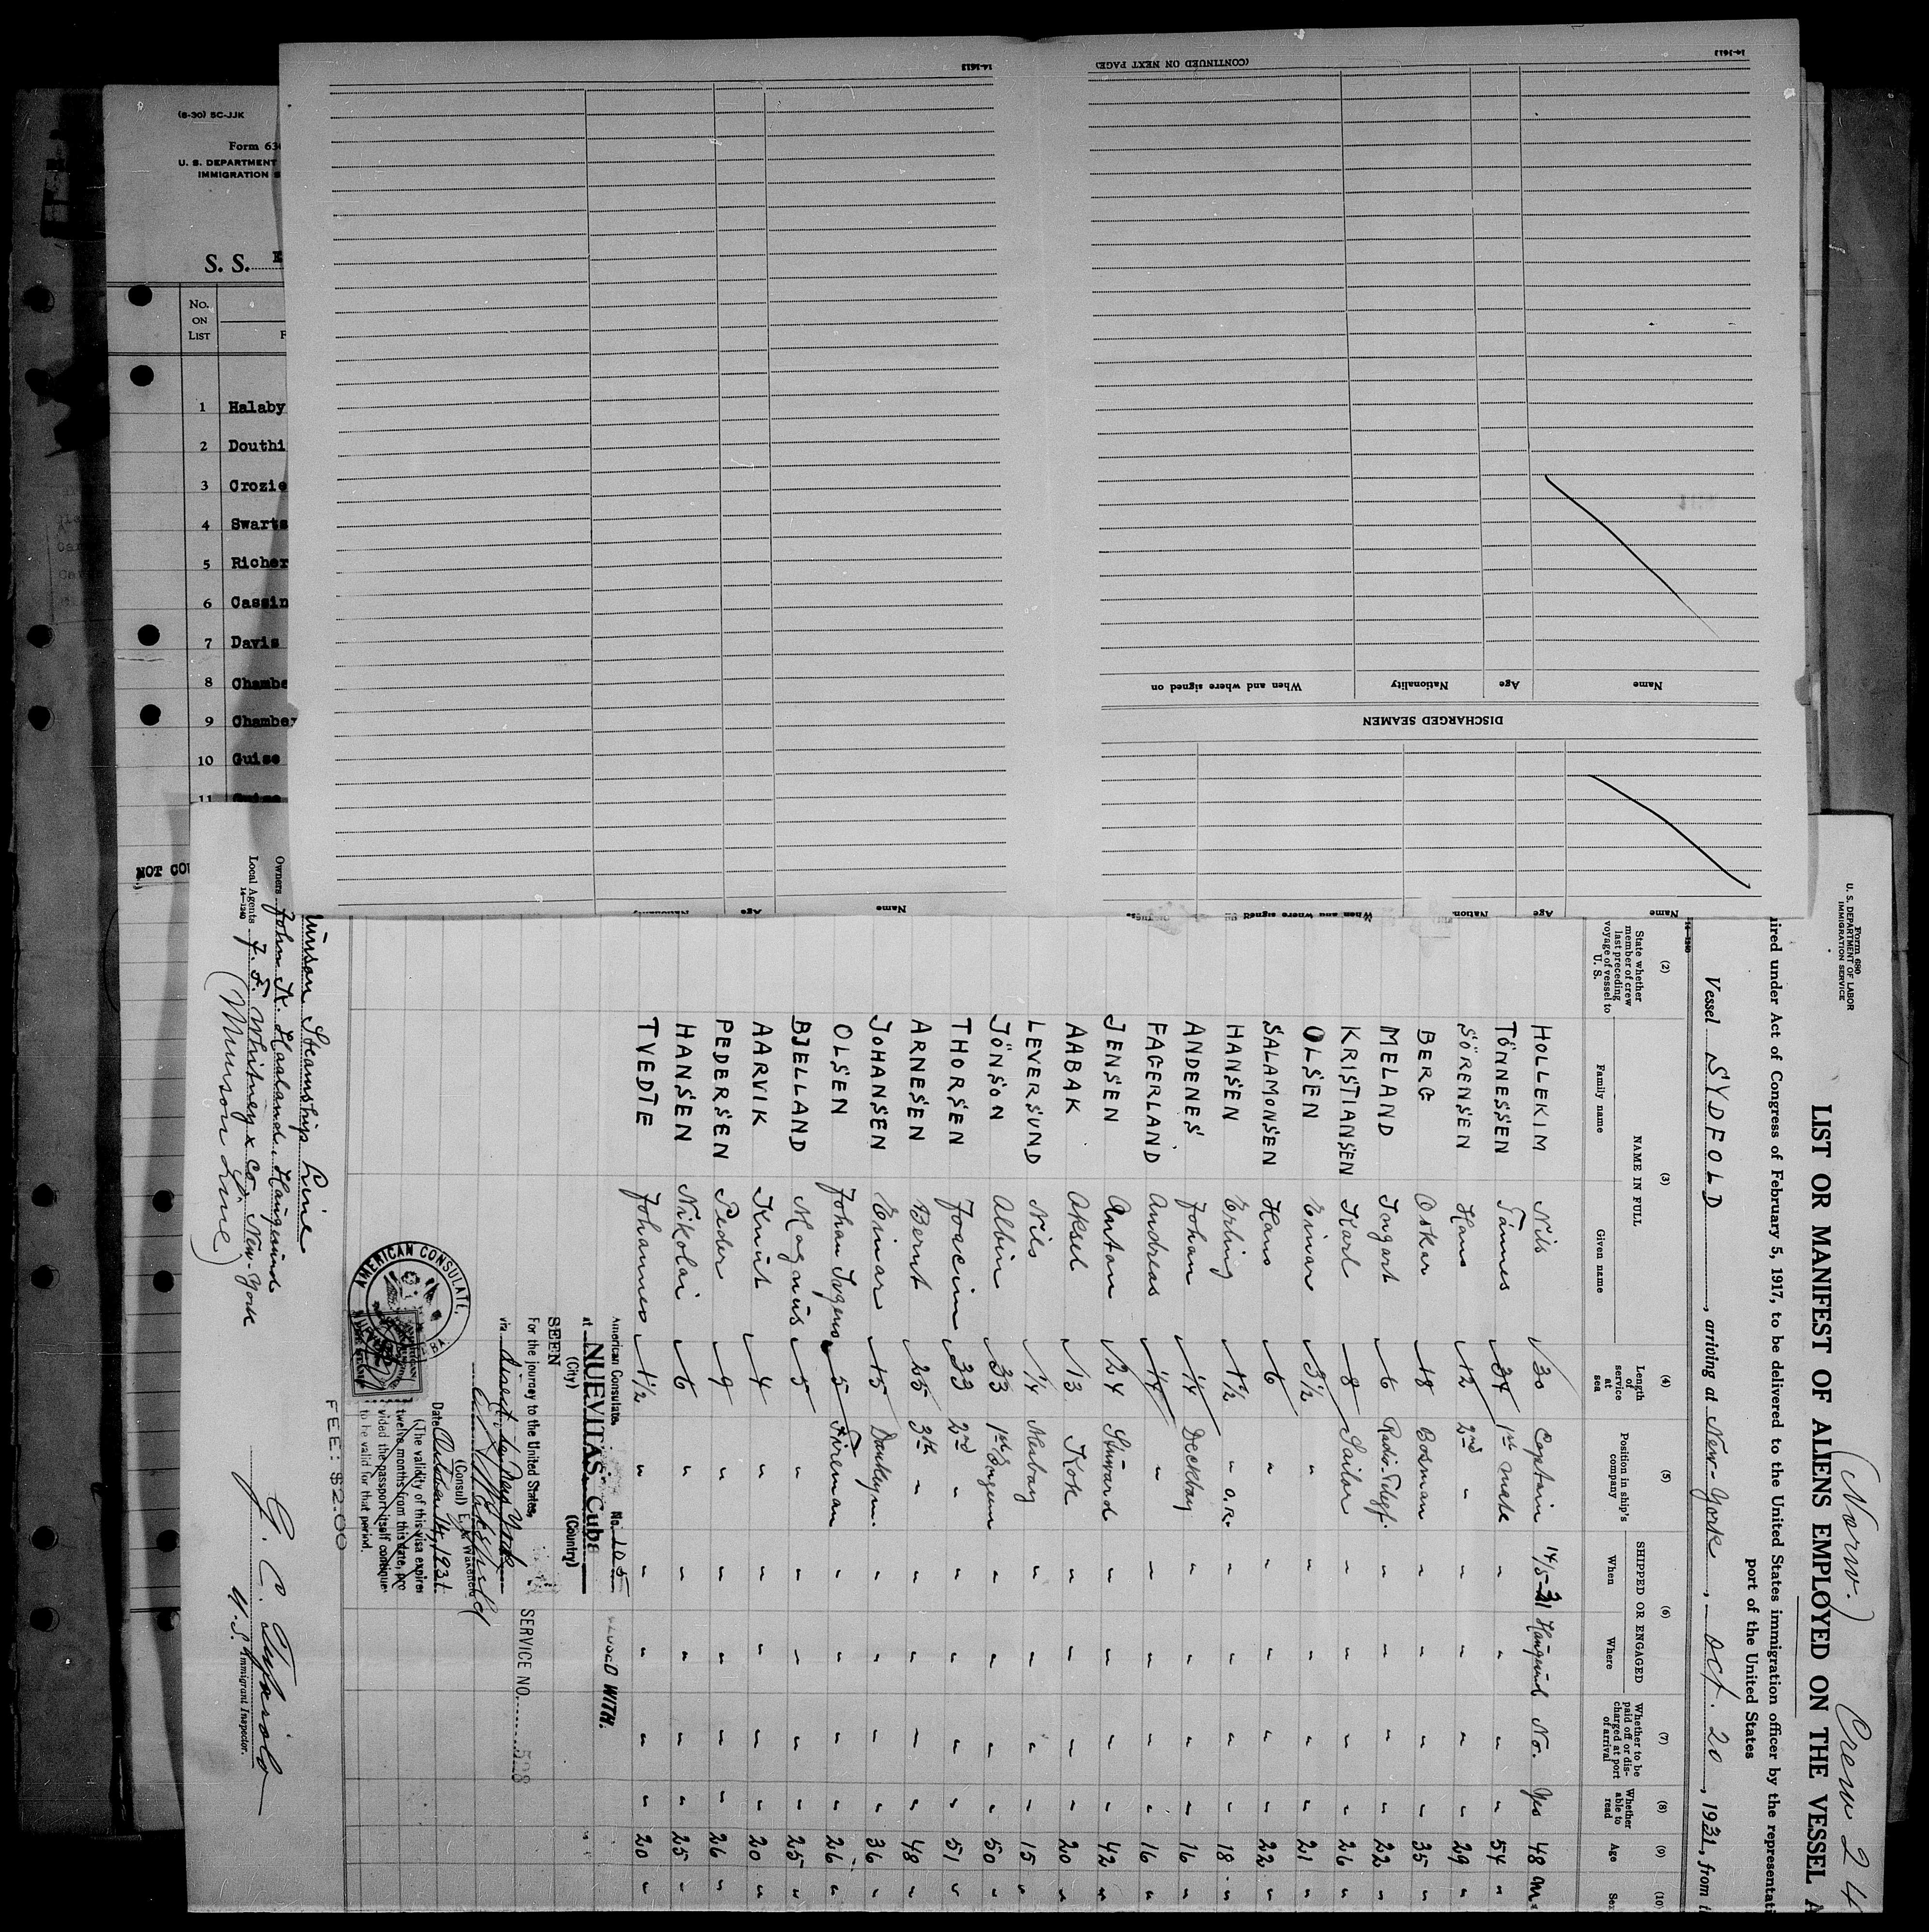 (8-30) 5C-JJK
Form 63
U. S. DEPARTMENT
IMMIGRATION S
S. S.
No. ON LIST
1 Halaby
2 Douthi
3 Crozie
4 Swarts
5 Richer
6 Cassin
7 Davis
8 Chambe
9 Chamber
10 Guise
11 Guise
NOT COU
14-1613
(CONTINUED ON NEXT PAGE)
14-1613
Name Age Nationality When and where signed on
DISCHARGED SEAMEN
Name Age Nation When and where signed on
Name Age Nationality
Form 680
U. S. DEPARTMENT OF LABOR
IMMIGRATION SERVICE
(Norw.) Crew 24
LIST OR MANIFEST OF ALIENS EMPLOYED ON THE VESSEL A
ired under Act of Congress of February 5, 1917, to be delivered to the United States immigration officer by the representati
port of the United States
Vessel SYDFOLD, arriving at New-York, Oct. 20, 1931, from
14-1240
(2) (3) (4) (5) (6) (7) (8) (9) (10)
State whether member of crew last preceding voyage of vessel to U. S.
NAME IN FULL
Family name Given name
Length of service at sea
Position in ship's company
SHIPPED OR ENGAGED
When Where
Whether to be paid off or discharged at port of arrival
Whether able to read
Age
Sex
HOLLEKIM Nils 30 Captain 14/5-31 Haugesund No. Yes 48 m.
TÖNNESSEN Tönnes 34 1st mate " " " " 54 "
SÖRENSEN Hans 12 2nd " " " " " 29 "
BERG Oskar 18 Bosman " " " " 35 "
MELAND Ingart 6 Radio-Telegf. " " " " 22 "
KRISTIANSEN Karl 8 Sailor " " " " 26 "
OLSEN Einar 3½ " " " " " 21 "
SALAMONSEN Hans 6 " " " " " 22 "
HANSEN Erling 1½ " o.s. " " " " 18 "
ANDENES Johan ¼ Deckboy " " " " 16 "
FAGERLAND Andreas ¼ " " " " " 16 "
JENSEN Anton 24 Stuward " " " " 42 "
AABAK Aksel 13 Kok " " " " 20 "
LEVERSUND Nils ¼ Mesboy " " " " 15 "
JÖNSON Albin 33 1st Engeen " " " " 50 "
THORSEN Joacim 33 2nd " " " " " 51 "
ARNESEN Bernt 25 3th " " " " " 48 "
JOHANSEN Einar 15 Dunkym. " " " " 36 "
OLSEN Johan 5 Fireman " " " " 26 "
BJELLAND Magnus 5 " " " " " 25 "
AARVIK Knut 4 " " " " " 20 "
PEDERSEN Peder 9 " " " " " 26 "
HANSEN Nikolai 6 " " " " " 25 "
TVEDTE Johannes 1½ " " " " " 20 "
American Consulate No. 105
at NUEVITAS Cuba
(City) (Country)
SEEN
For the journey to the United States,
via direct to New York
(Consul) E. A. Wakefield
Date October 14, 1931
(The validity of this visa expires
twelve months from this date, pro
vided the passport itself continues
to be valid for that period.
FEE: $2.00
AMERICAN CONSULATE,
WITH.
SERVICE NO. 528
Munson Steamship Line
Owners John K. Haaland, Haugesund
Local Agents F. F. Whitney & Co, New-York
14-1240
(Munson Line)
U.S. Immigrant Inspector.